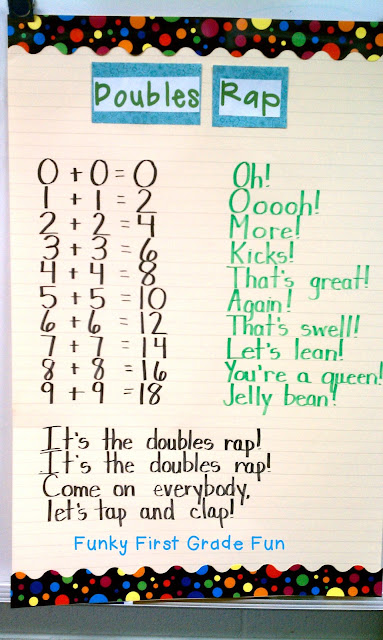 Doubles Rap
0 + 0 = 0 Oh!
1 + 1 = 2 Ooooh!
2 + 2 = 4 More!
3 + 3 = 6 Kicks!
4 + 4 = 8 That's great!
5 + 5 = 10 Again!
6 + 6 = 12 That's swell!
7 + 7 = 14 Let's lean!
8 + 8 = 16 You're a queen!
9 + 9 = 18 Jelly bean!
It's the doubles rap!
It's the doubles rap!
Come on everybody,
let's tap and clap!
Funky First Grade Fun